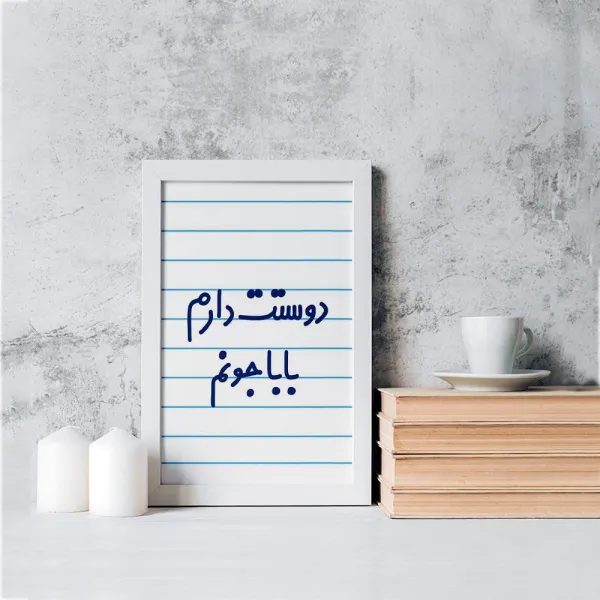 دوستت دارم
باباجونم